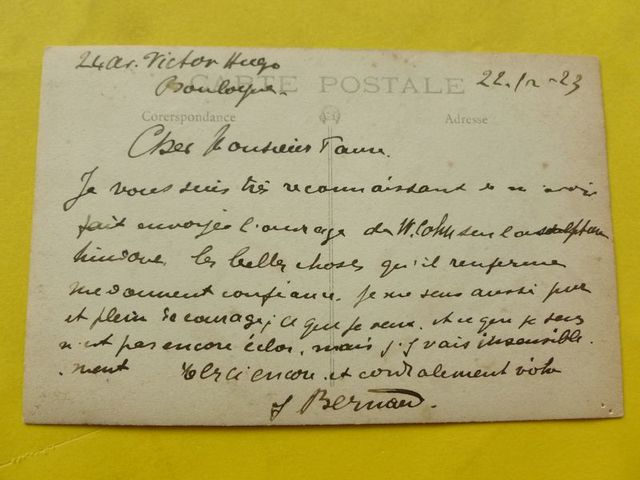 24 av. Victor Hugo
Boulogne.
22-12-23
CARTE POSTALE
Corerspondance
Adresse
Cher Monsieur
Je vous suis très reconnaissant de m'avoir
fait envoyer l'ouvrage de W. Cohn sur la sculpture
hindoue. les belles choses qu'il renferme
me donnent confiance. Je me sens aussi pur
et plein de courage; ce que je veux. et ce que je sens
n'est pas encore éclos, mais j'y vais insensible-
ment Merci encore et cordialement votre
J Bernard.